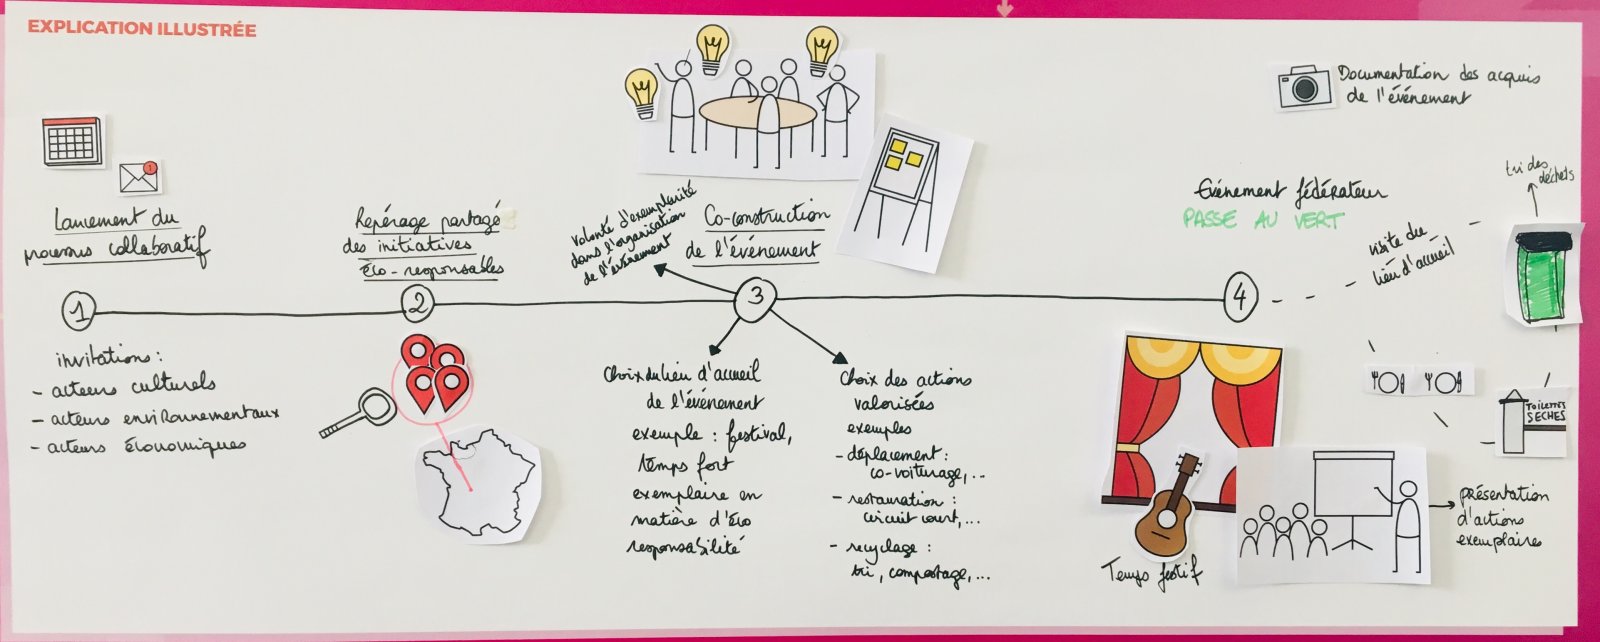 EXPLICATION ILLUSTRÉE
1
Lancement du
processus collaboratif
1
invitations :
- acteurs culturels
- acteurs environnementaux
- acteurs économiques
Repérage partagé
des initiatives
éco-responsables
2
volonté d'exemplarité
dans l'organisation
de l'événement
Co-construction
de l'événement
3
Choix du lieu d'accueil
de l'événement
exemple : festival,
temps fort
exemplaire en
matière d'éco
responsabilité
Choix des actions
valorisées
exemples
- déplacement :
co-voiturage, ...
- restauration :
circuit court, ...
- recyclage :
tri, compostage, ...
Documentation des acquis
de l'événement
Evénement fédérateur
PASSE AU VERT
4
visite du
lieu d'accueil
tri des
déchets
TOILETTES
SECHES
Temps festif
présentation
d'actions
exemplaires